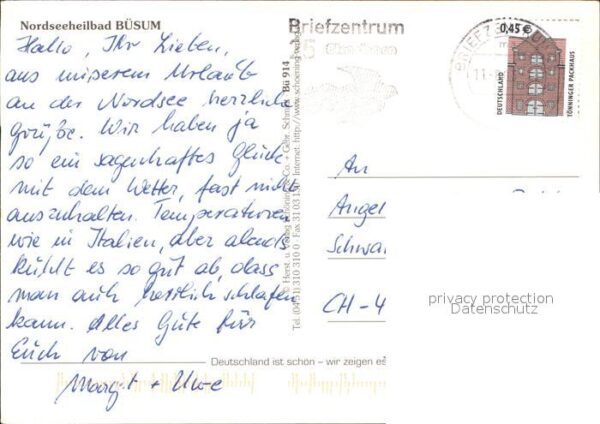 Nordseeheilbad BÜSUM
Hallo, Ihr Lieben,
aus unserem Urlaub
an der Nordsee herzliche
Grüße. Wir haben ja
so ein sagenhaftes Glück
mit dem Wetter, fast nicht
auszuhalten. Temperaturen
wie in Italien, aber abends
kühlt es so gut ab, dass
man auch herrlich schlafen
kann. Alles Gute für
Euch von
Margit + Uwe
Deutschland ist schön – wir zeigen es
Bü 914
Tel. (04 51) 310 310 0
Internet: http://www.schoening-verlag
Briefzentrum
BRIEFZENTRUM
0,45 €
DEUTSCHLAND
TÖNNINGER PACKHAUS
An
Angel
Schwa
CH-4
privacy protection
Datenschutz